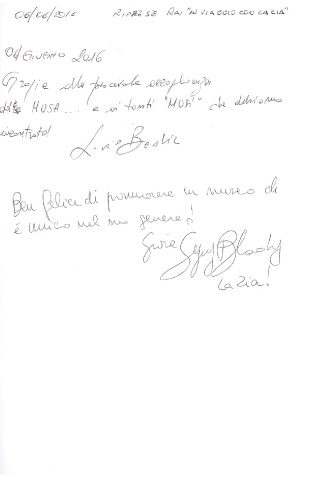 06/06/2016 RIPRESE RAI "IN VIAGGIO CON LA ZIA"
06 GIUGNO 2016
Grazie alla piacevole accoglienza
del MUSA... e ai tanti "MUSI" che abbiamo
incontrato!
Ben felice di promuovere un museo che
è unico nel suo genere!
La Zia!